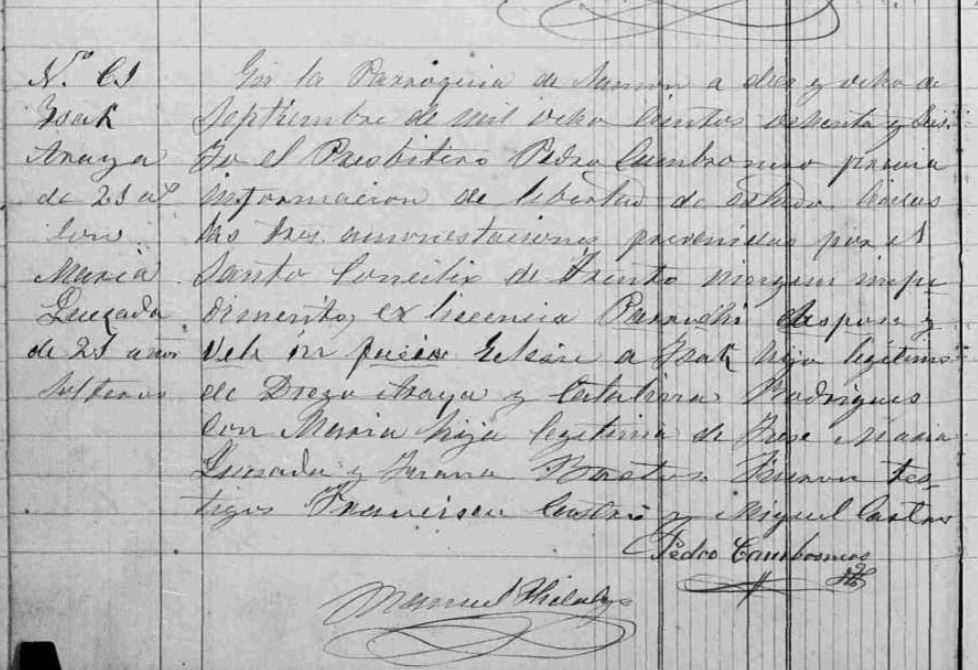 Isak
Araya
de 21 aˢ
con
Maria
Quezada
de 21 años
Solteros
En la Parroquia de San Ramon a diez y ocho de
Septiembre de mil ocho cientos ochenta y seis.
Yo el Presbitero Pedro Cambronero previa
informacion de libertad de estado leidas
las tres amonestaciones prevenidas por el
Santo Concilio de Trento ningun impe
dimento, ex licencia Parrochi despose y
vele in facie Eclesie a Isak hijo legitimo
de Diego Araya y Catalina Rodrigues
Con Maria hija legitima de Jose Maria
Quezada y Juana Bastos. Fueron tes-
tigos Francisco Castro y Miguel Castro
Pedro Cambronero
Manuel Hidalgo